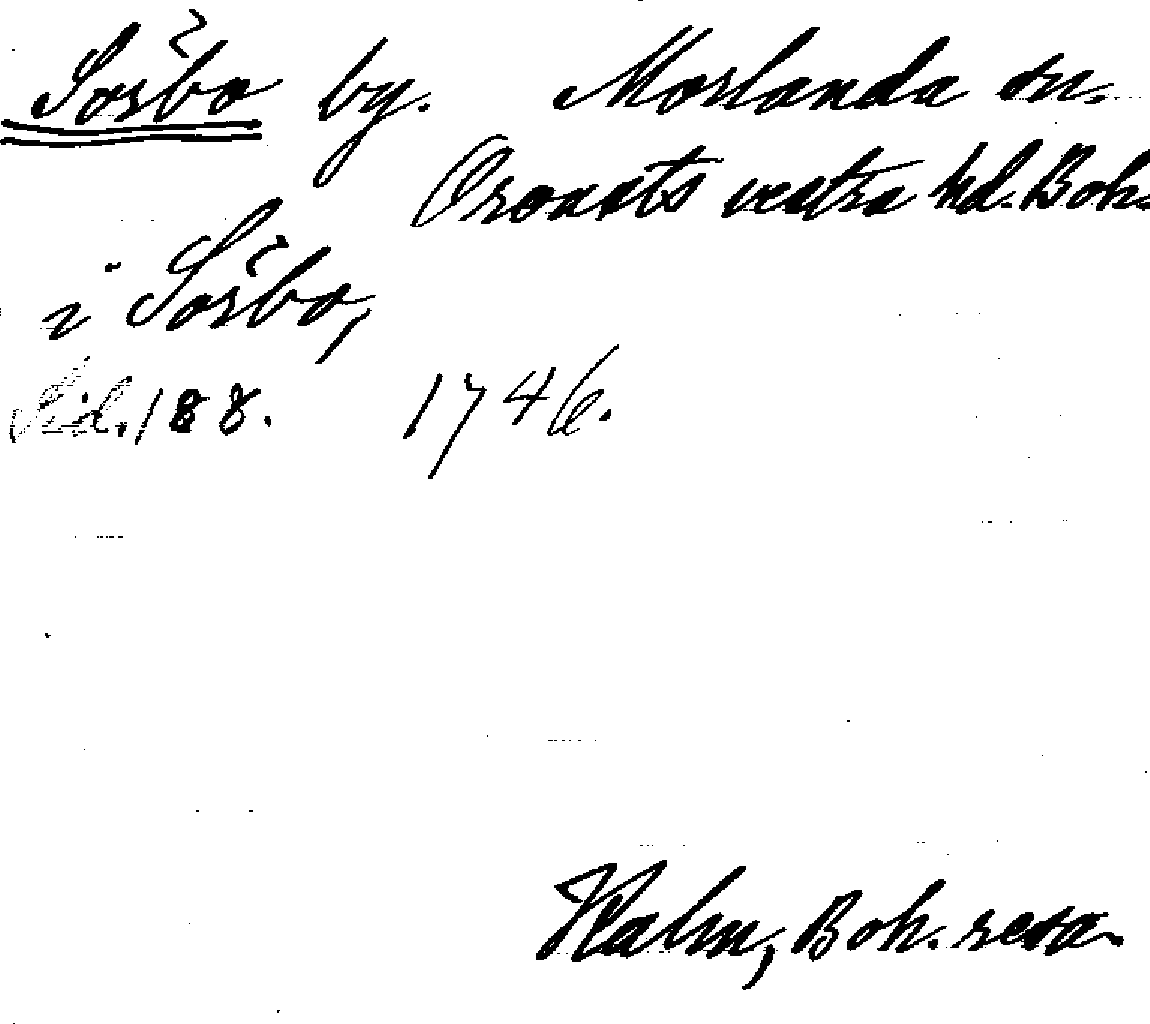 Sörbo by. Morlanda sn.
Orousts vestra hd. Boh.
i Sörbo,
Sid. 188. 1746.
Kalm, Boh. resa.